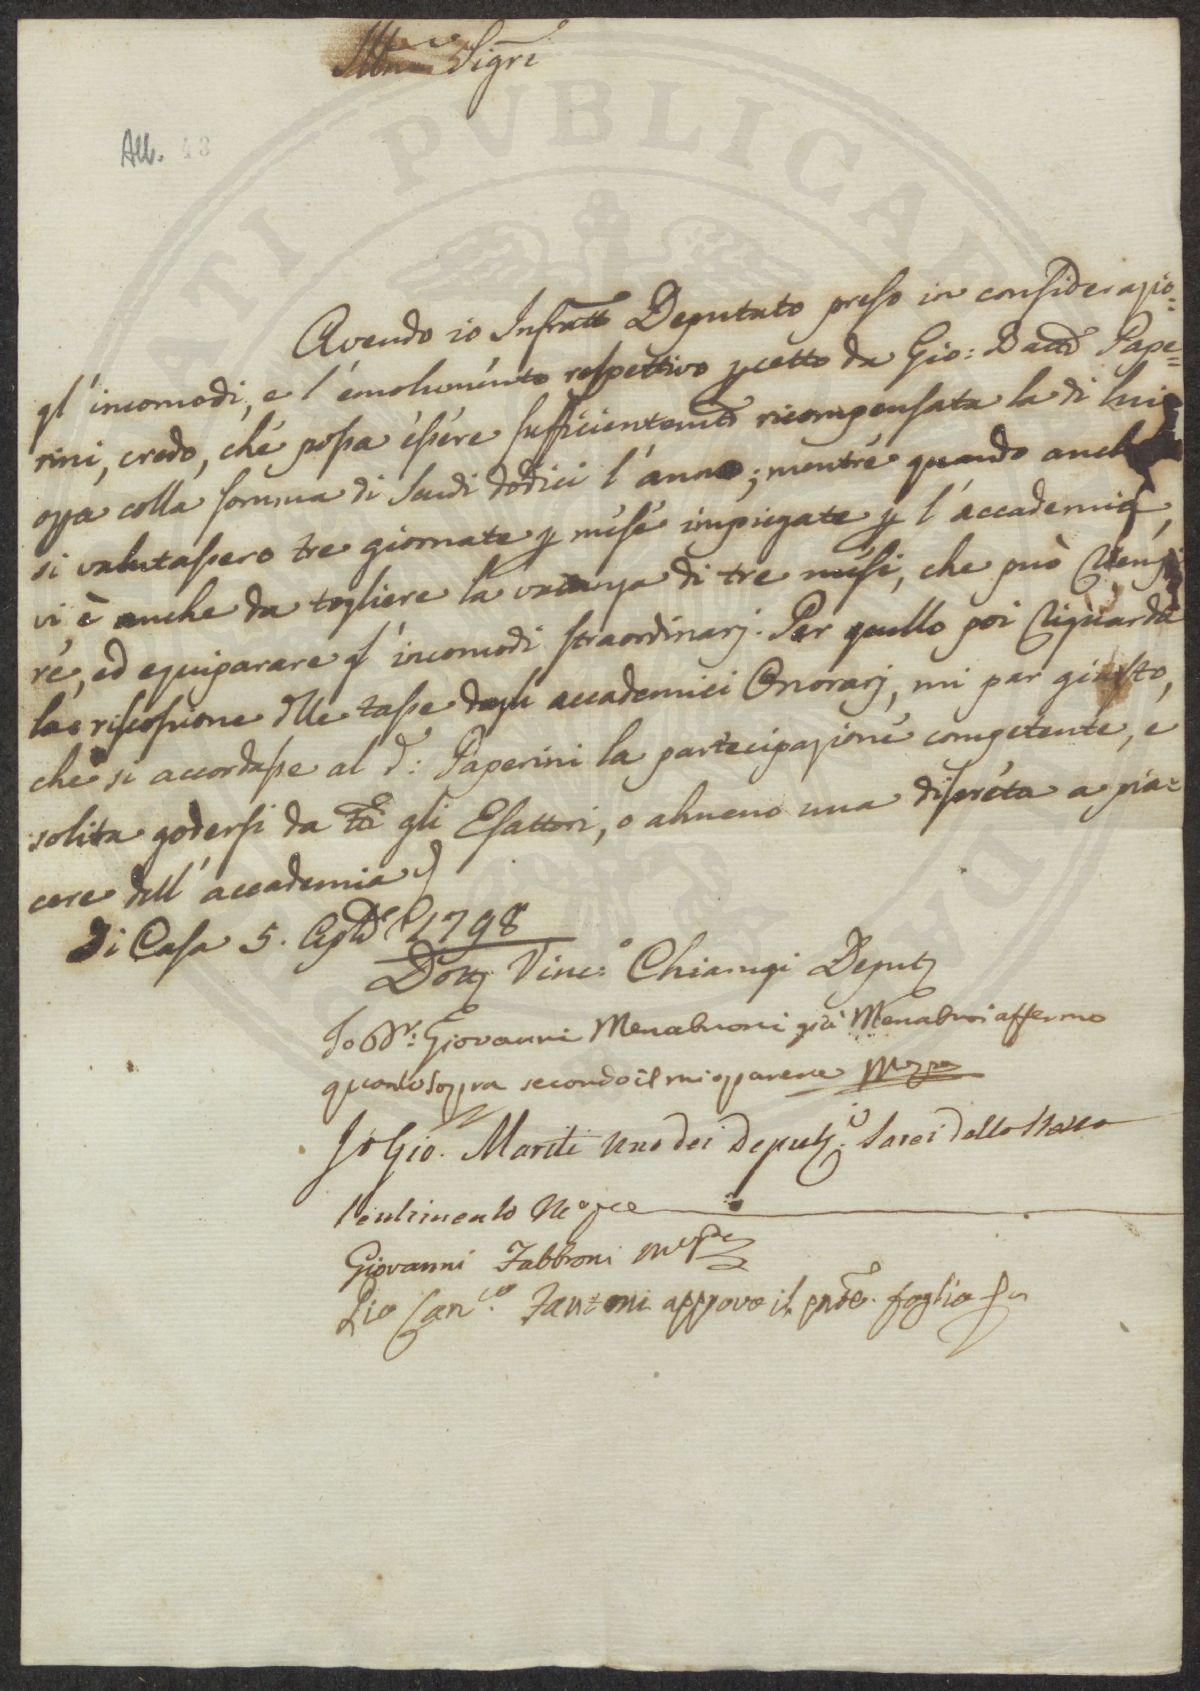 Illmi Sigri
All. 43
Avendo io Infratto Deputato preso in considerazio=
gl'incomodi, e l'emolumento respettivo pcetto da Gio: Batta Pape=
rini, credo, che possa essere sufficientemte ricompensata la di lui
opa colla somma di Scudi dodici l'anno; mentre quando anche
si valutassero tre giornate p mese impiegate p l'accademia,
vi è anche da togliere la vacanza di tre mesi, che può
re, ed equiparare gl'incomodi straordinarj. Per quello poi riguarda
la riscossione dlle tasse dagli accademici Onorarj, mi par giusto,
che si accordasse al do: Paperini la partecipazione competente, e
solita godersi da tti gli Esattori, o almeno una discreta a pia=
cere dell'accademia
Di Casa 5. Agto 1798
Dott Vinco: Chiarugi Deputo
Io Dr: Giovanni Menabuoni già Menabuoi affermo
quanto sopra secondo il mio parere Mppa
Io Gio. Mariti uno dei Deputi: sarei dello stesso
sentimento Mo ppa
Giovanni Fabbroni mo ppa
Pio Canco: Fantoni approvo il pnte. foglio
PVBLICAE